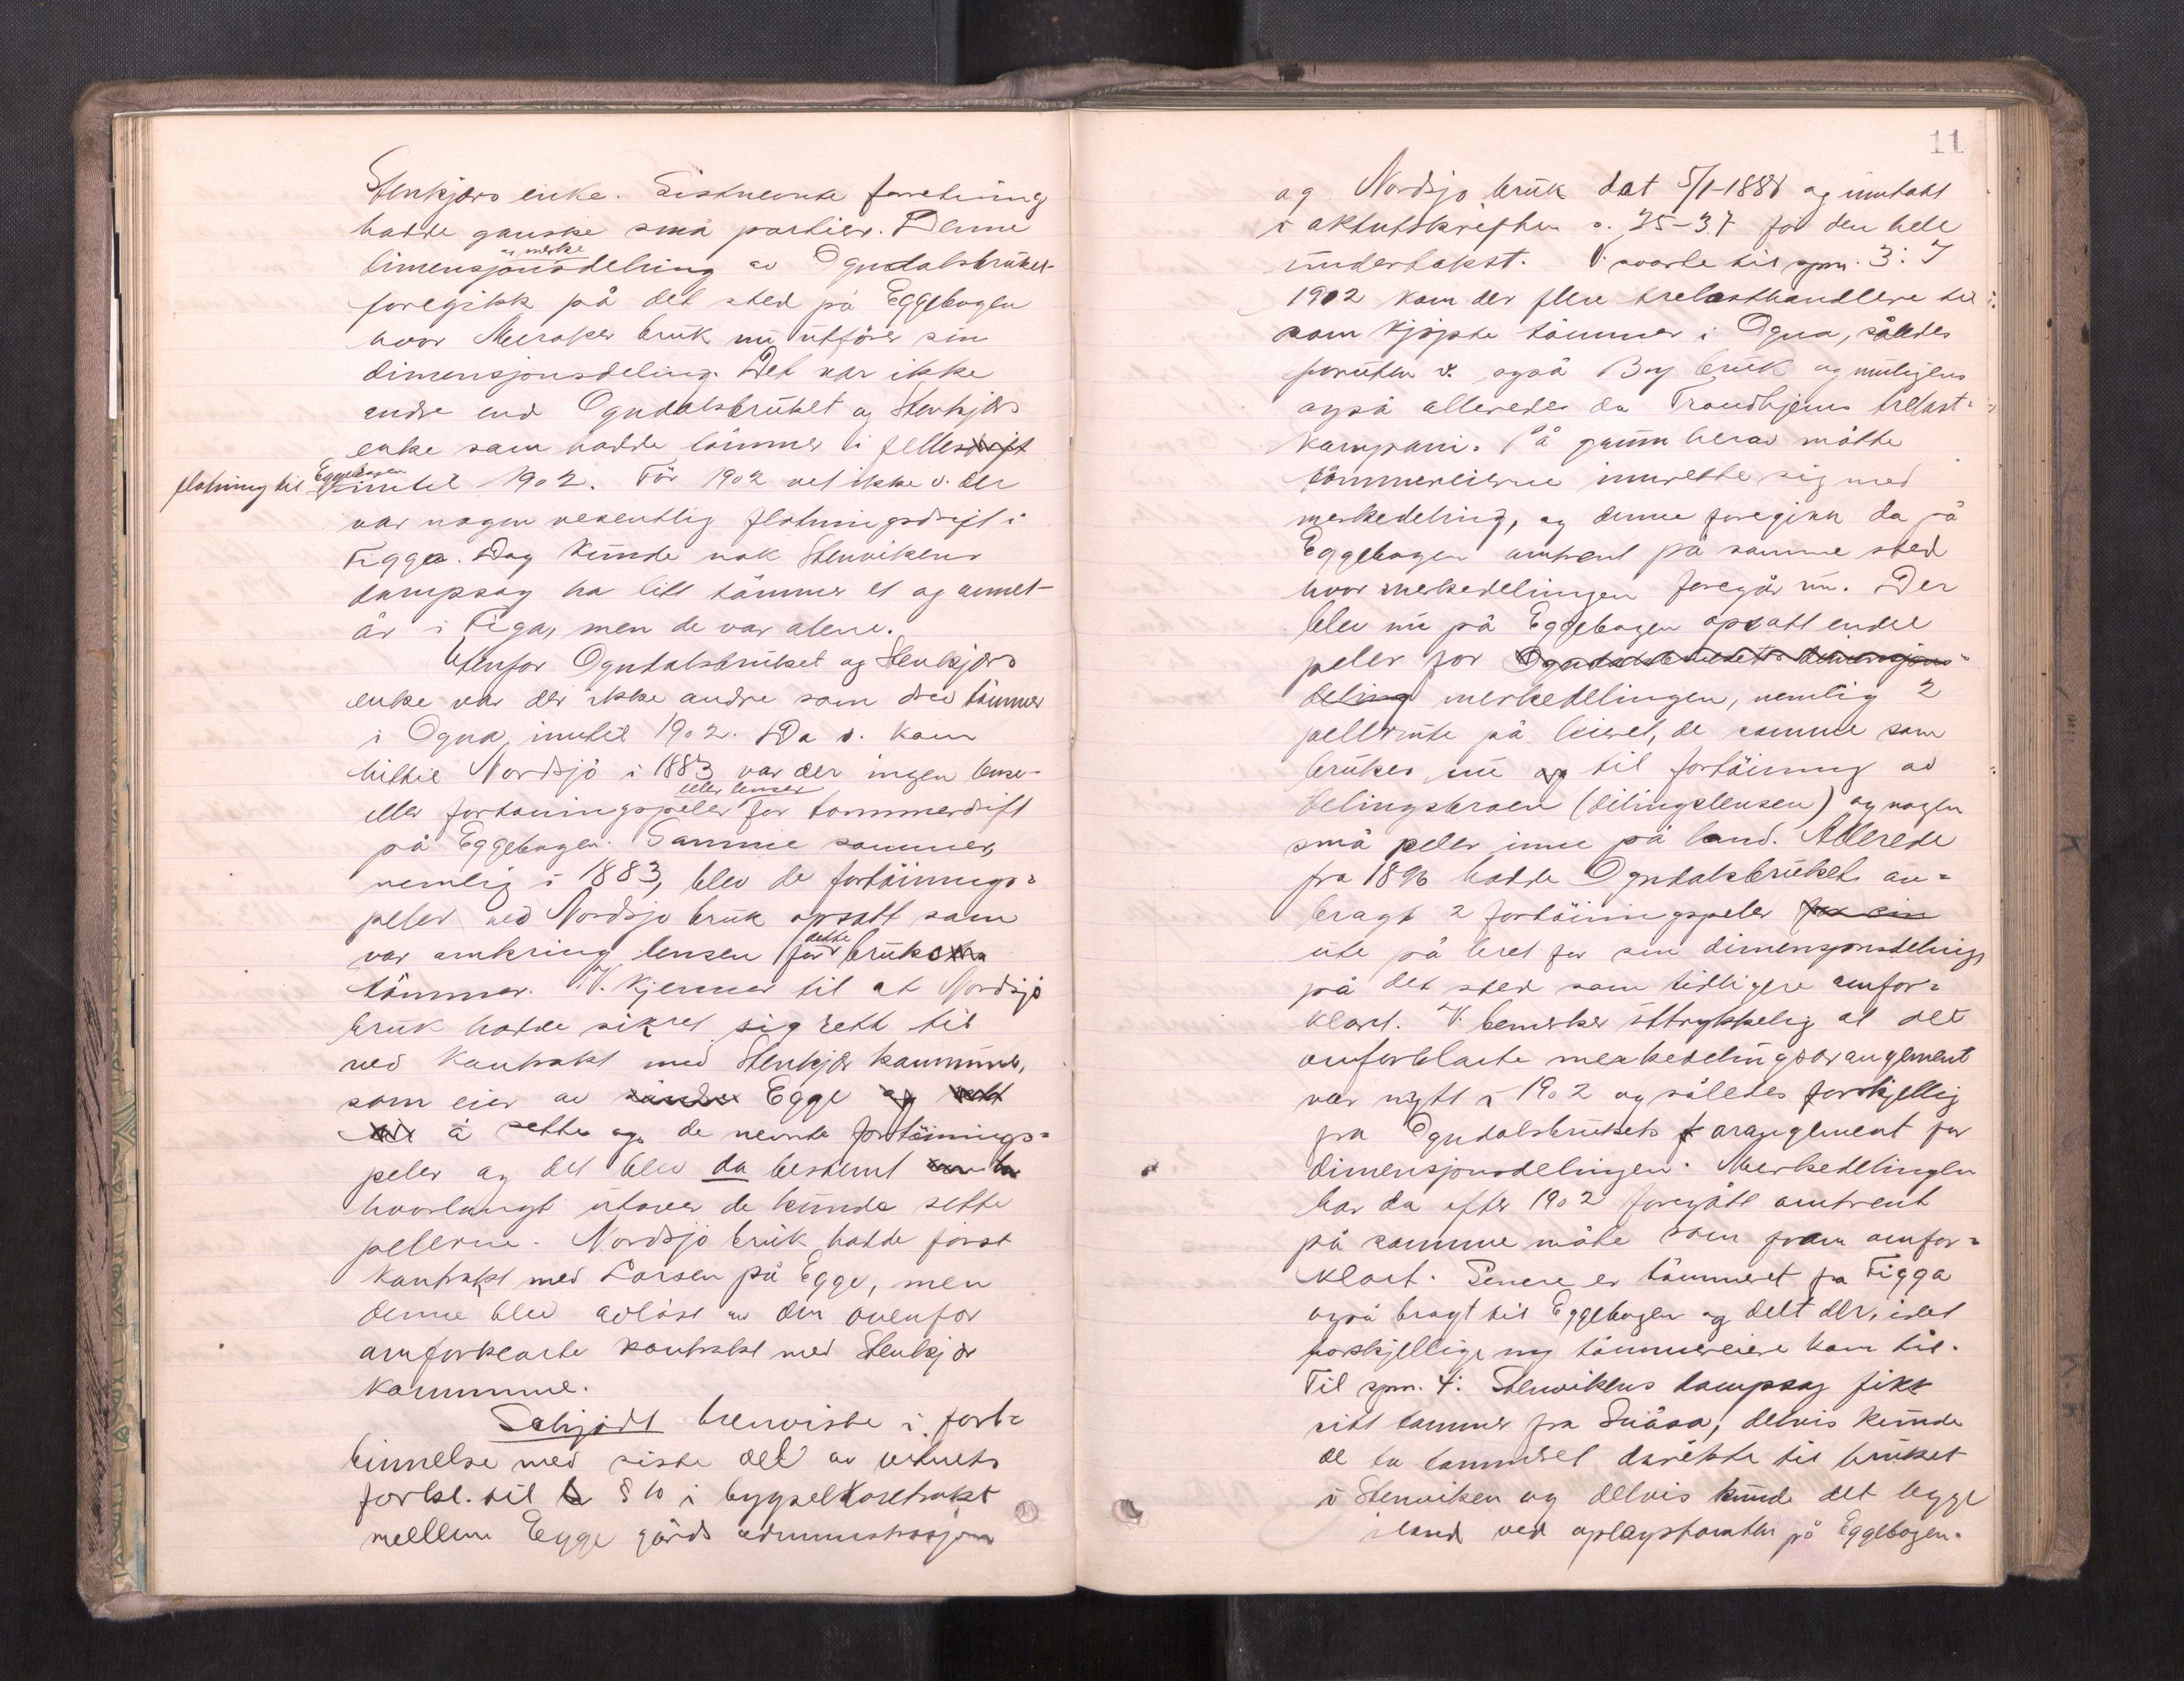 Stenkjærs enke. Sistnevnte forretning
hadde ganske små partier. Denne
og merke
dimensjonsdeling av Ogndalsbruket
foregikk på det sted på Eggebogen
hvor Meraker bruk nu utfører sin
dimensjonsdeling. Det var ikke
andre end Ogndalsbruket og Stenkjærs
enke som hadde tömmer i fellesdrift
fløtning til Eggebogen inntil 1902. Før 1902 vet ikke v. der
var nogen vesentlig fløtningsdrift i
Figga. Dog kunde nok Stenvikens
dampsag ha litt tömmer et og annet
år i Figa, men de var alene.
Utenfor Ogndalsbruket og Stenkjærs
enke var der ikke andre som drev tömmer
i Ogna inntil 1902. Da v. kom
hit til Nordsjö i 1883 var der ingen lense-
eller lenser
eller fortøiningspeler for tømmerdrift
på Eggebogen. Samme sommer,
nemlig i 1883, blev de fortöinings-
peler ved Nordsjö bruk opsatt som
var omkring lensen for dette bruks
tömmer. V. kjenner til at Nordsjö
bruk hadde sikret sig rett til
ved kontrakt med Stenkjær kommune,
som eier av søndre Egge og rett
til å sette op de nevnte fortöinings-
peler og det blev da bestemt
hvorlangt utover de kunde sette
pelerne. Nordsjö bruk hadde først
kontrakt med Larsen på Egge, men
denne blev avløst av den ovenfor
omforklarte kontrakt med Stenkjær
kommune.
Schjødt henviste i for-
binnelse med siste del av vidnets
forkl. til § 10 i bygselkontrakt
mellem Egge gårds administrasjon
11
og Nordsjö bruk dat 5/1-1888 og inntatt
i aktutskriften s. 35-37 for den hele
undertakst. V. svarte til spm. 3: I
1902 kom der flere trelasthandlere til
som kjöpte tömmer i Ogna, således
foruten v. også By bruk og muligens
også allerede da Trondhjems trelast-
kompani. På grunn herav måtte
tömmereierne innrette sig med
merkedeling, og denne foregikk da på
Eggebogen omtrent på samme sted
hvor merkedelingen foregår nu. Der
blev nu på Eggebogen opsatt endel
peler for Ogndalsbrukets dimensjons-
deling merkedelingen, nemlig 2
peller ute på leiret, de samme som
brukes nu og til fortöining av
delingsbroen (delingslensen) og nogen
små peler inne på land. Allerede
fra 1896 hadde Ogndalsbruket an-
bragt 2 fortöiningspeler for sin
ute på leret for sin dimensjonsdeling
på det sted som tidligere omfor-
klart. V. bemerker uttrykkelig at det
omforklarte merkedelingsarangement
var nytt i 1902 og således forskjellig
fra Ogndalsbrukets arangement for
dimensjonsdelingen. Merkedelingen
har da efter 1902 foregått omtrent
på samme måte som foran omfor-
klart. Senere er tömmeret fra Figga
også bragt til Eggebogen og delt der, idet
forskjellige ny tömmereiere kom til.
Til spm. 4: Stenvikens dampsag fikk
sitt tømmer fra Snåsa, delvis kunde
de ta tømmeret direkte til bruket
i Stenviken og delvis kunde det legge
iland ved oplagstomten på Eggebogen.